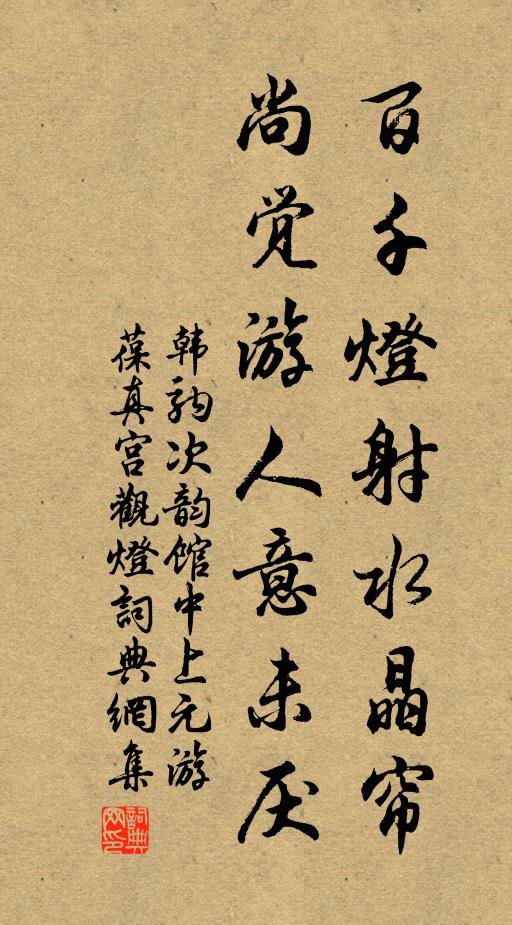 百千燈射水晶帘
尚觉游人意未厌
韩驹次韵馆中上元游
葆真宫觀燈詞典網集
詞典
网印